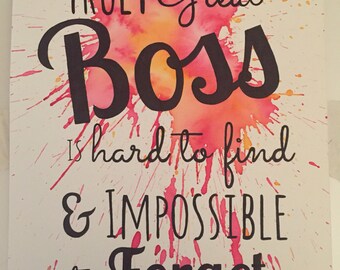 TRULY Great
Boss
is hard to find
& IMPOSSIBLE
to Forget